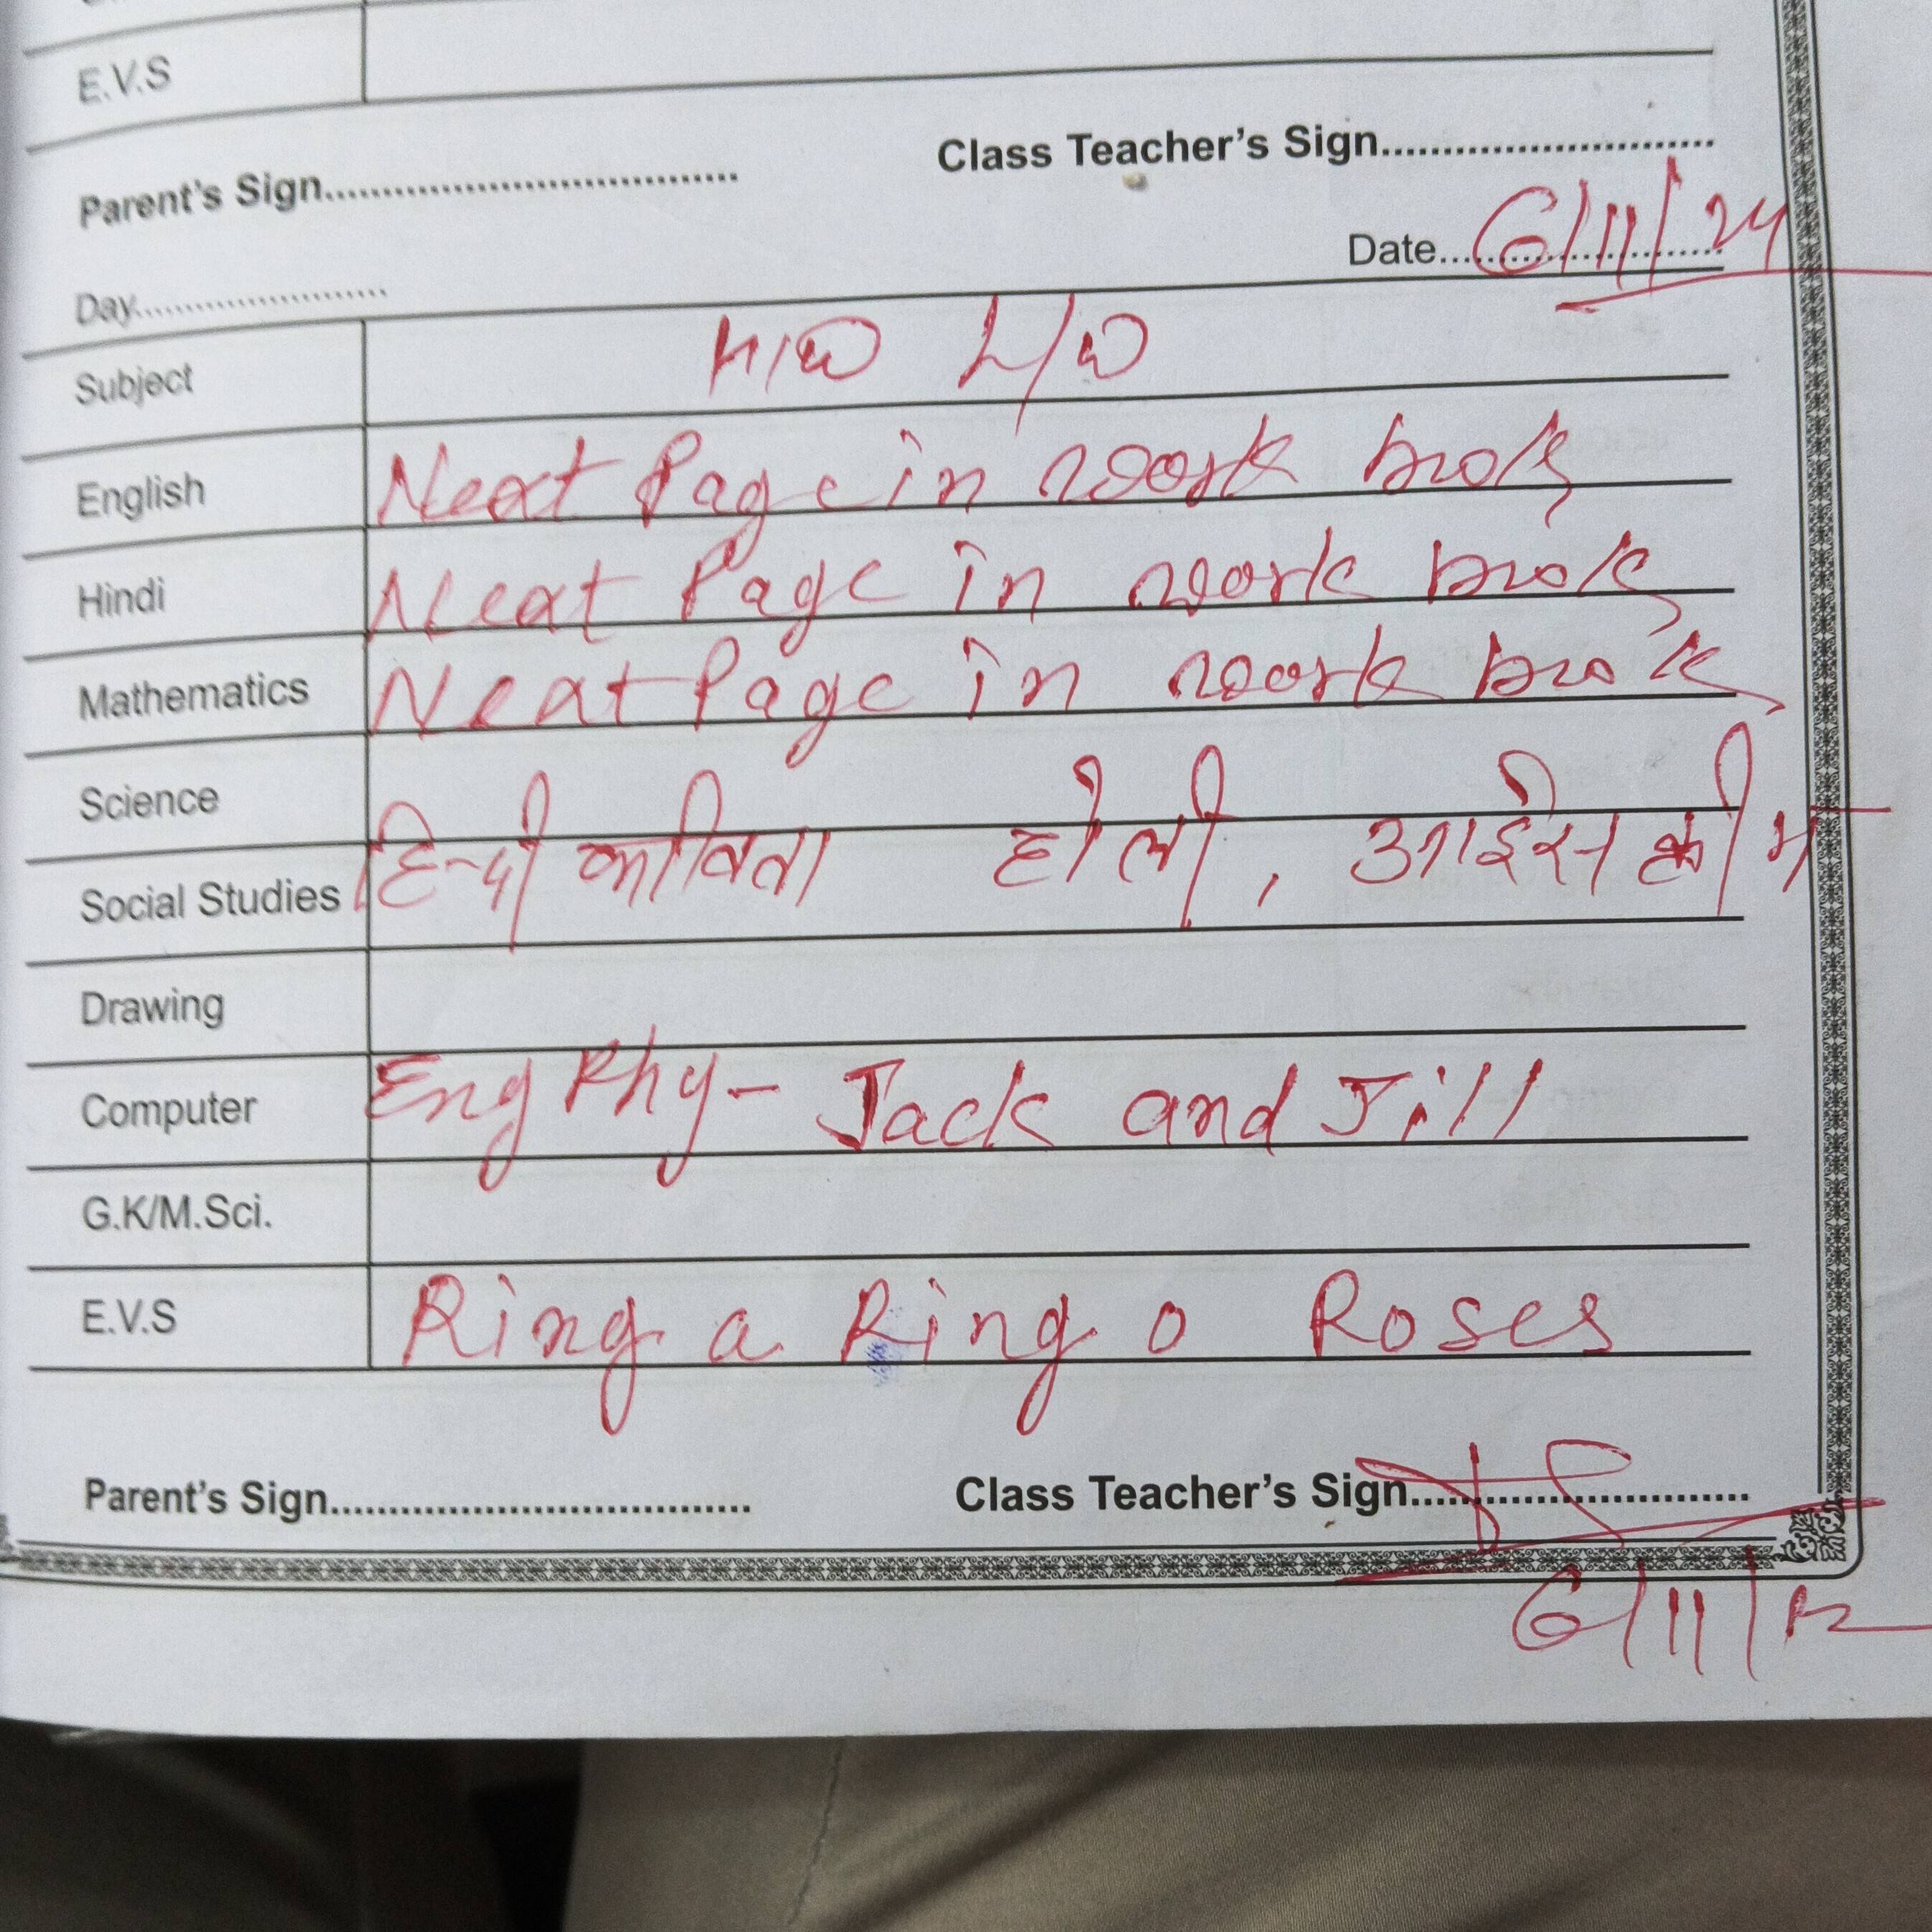 E.V.S
Parent's Sign.................................. Class Teacher's Sign...........................
Day....................... Date....6/11/24
Subject H/W L/W
English Next Page in work book
Hindi Next Page in work book
Mathematics Next Page in work book
Science
Social Studies हिन्दी कविता होली, आईसक्रीम
Drawing
Computer Eng Rhy- Jack and Jill
G.K/M.Sci.
E.V.S Ring a Ring o Roses
Parent's Sign.................................. Class Teacher's Sign...........................
6/11/